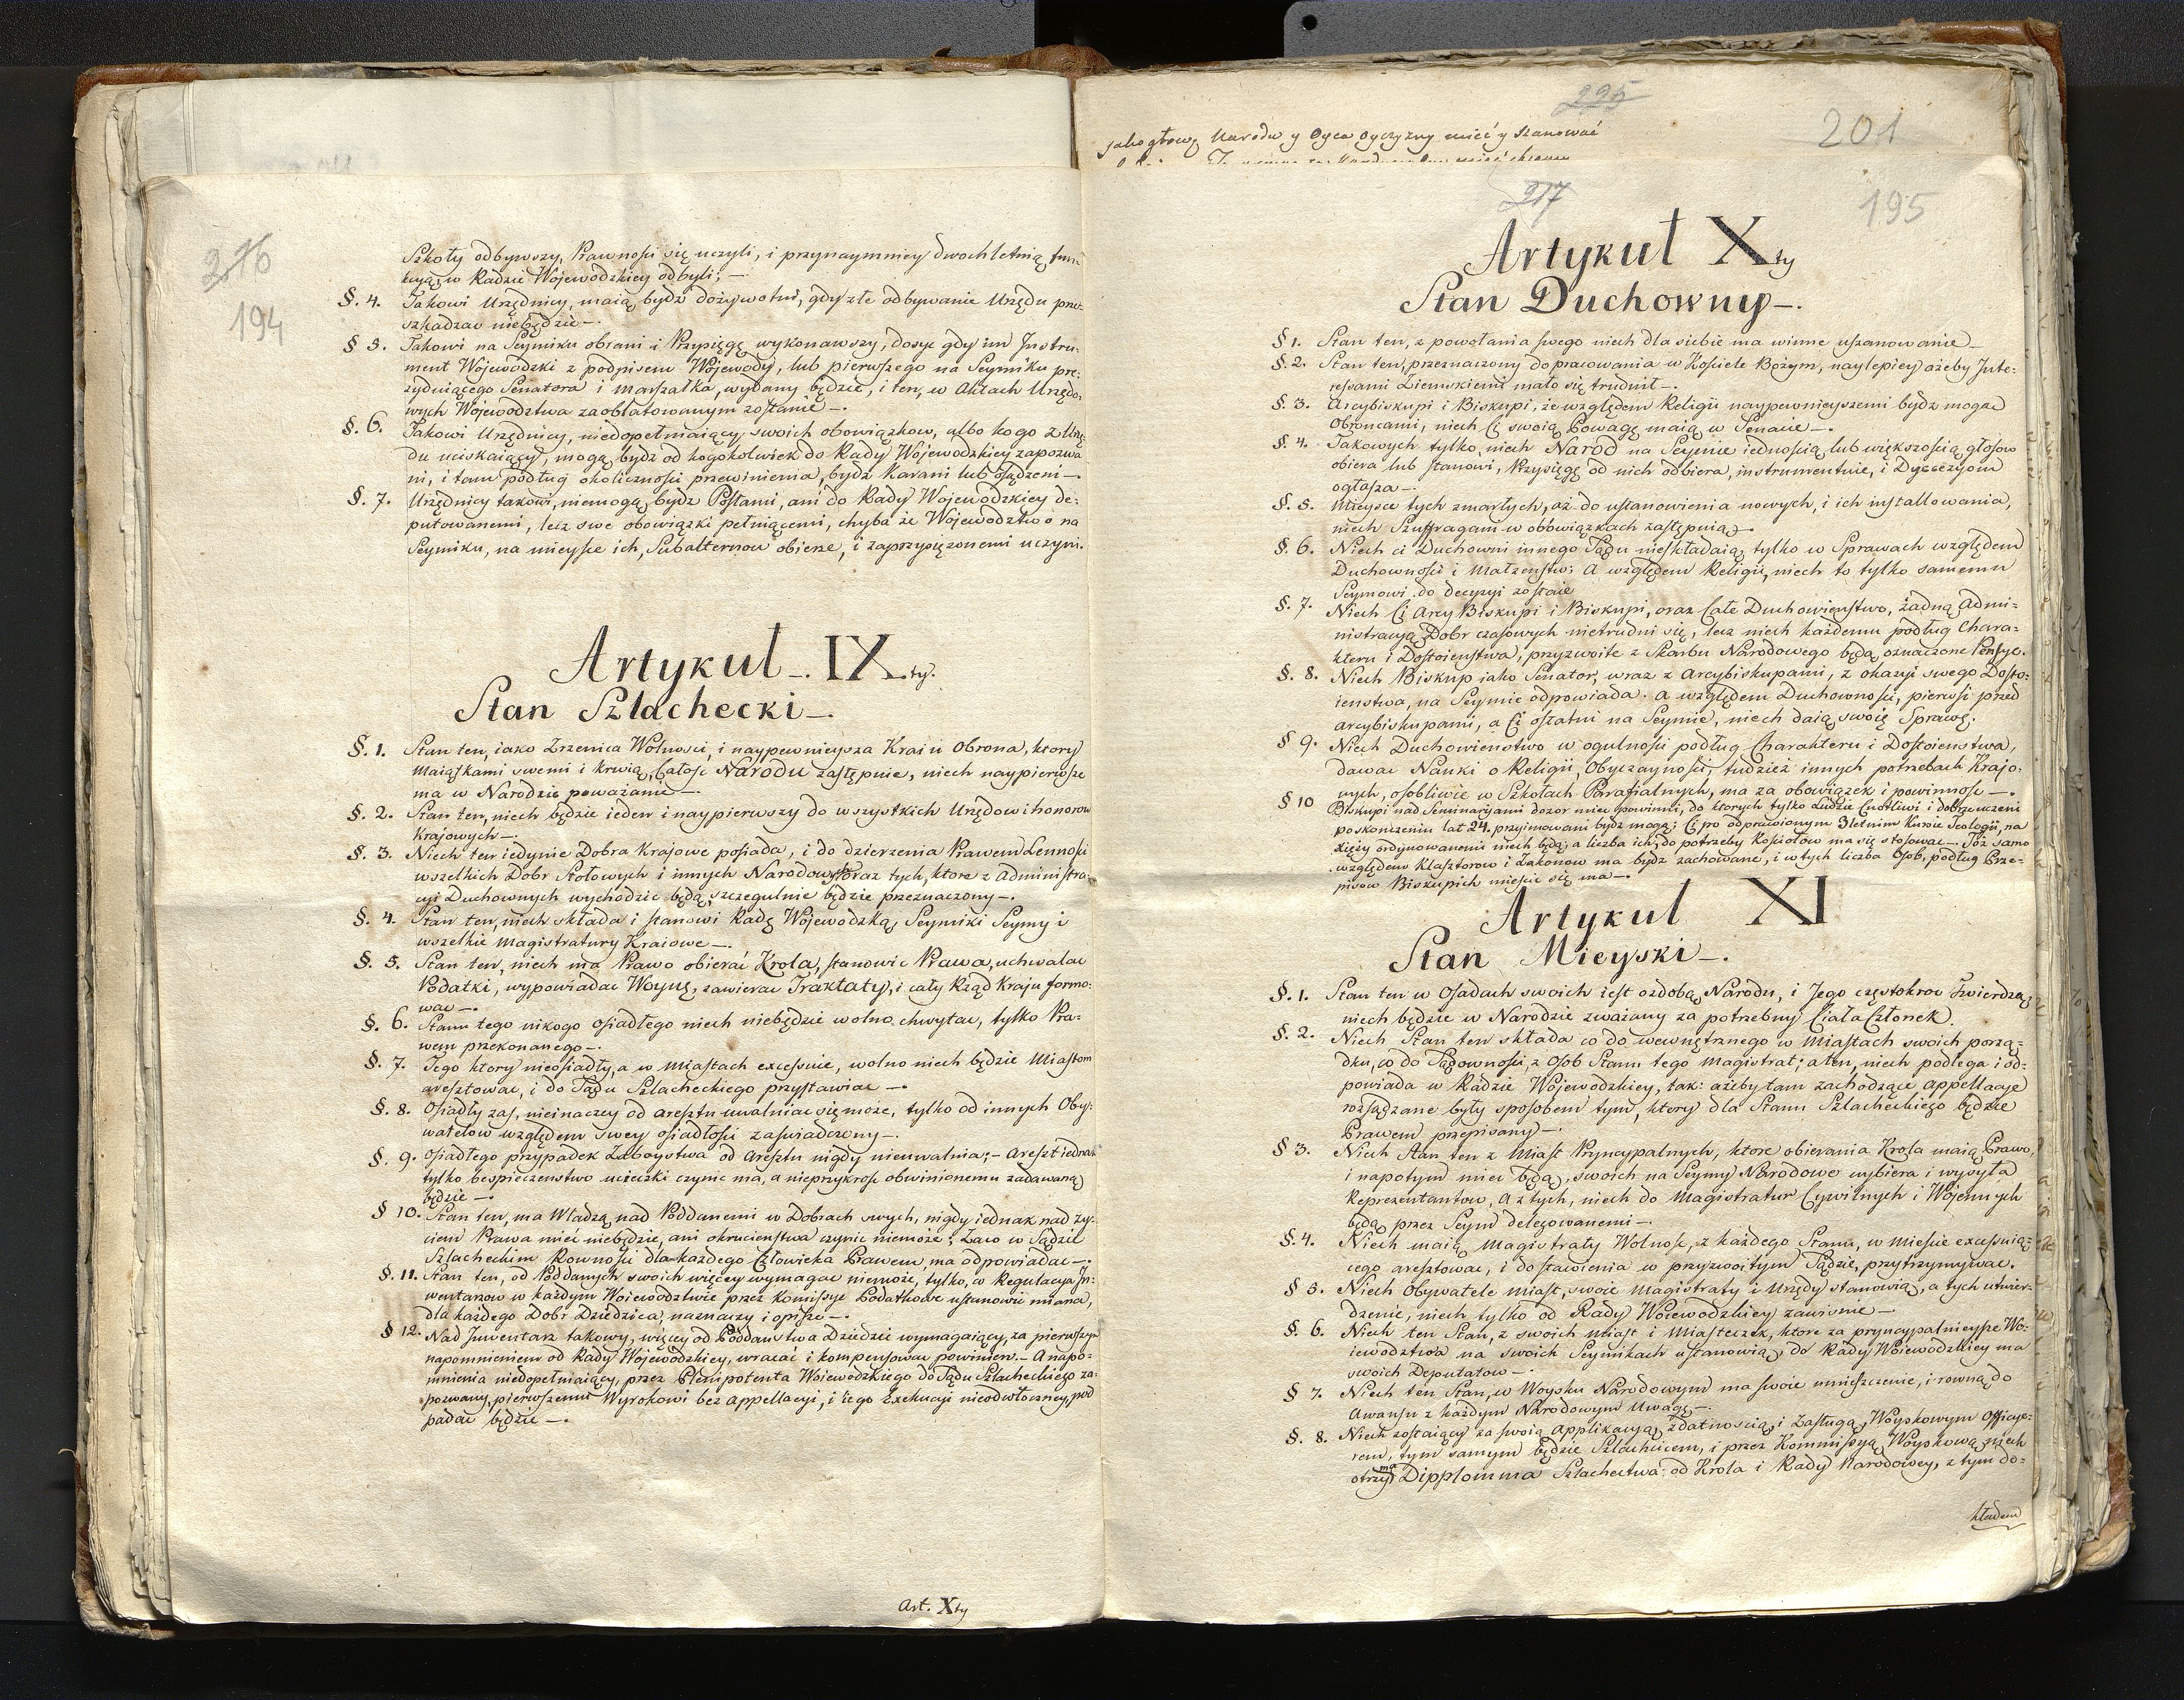 216
194
Szkoły odbywszy, Prawności się uczyli, i przynaymniey dwochletnią fun-
kcyą w Radzie Wojewodzkiey odbyli; —
§. 4. Takowi Urzędnicy, maią bydź dożywotni, gdy złe odbywanie Urzędu prze-
szkadzac niebędzie —.
§ 5. Takowi na Seymiku obrani i Przysięgę wykonawszy, dosyc gdy im Instru-
ment Wojewodzki z podpisem Wojewody, lub pierwszego na Seymiku pre-
zyduiącego Senatora i Marszałka, wydany będzie, i ten, w Aktach Urzędo-
wych Wojewodztwa zaoblatowanym zostanie —.
§. 6. Takowi Urzędnicy, niedopełniaiący swoich obowiązkow, albo kogo z Urzę-
du uciskaiący, mogą bydz od kogokolwiek do Rady Wojewodzkiey zapozwa
ni, i tam podług okoliczności przewinienia, bydz karani lub sądzeni —.
§. 7. Urzędnicy takowi, niemogą bydz Posłami, ani do Rady Wojewodzkiey de-
putowanemi, lecz swe obowiązki pełniącemi, chyba że Wojewodztwo na
Seymiku, na mieysce ich, Subalternow obierze, i zaprzysiężonemi uczyni.
Artykuł —. IX ty.
Stan Szlachecki —.
§. 1. Stan ten, iako Zrzenica Wolnosci, i naypewnieysza Kraiu Obrona, ktory
Maiątkami swemi i krwią, Całośc Narodu zastępuie, niech naypierwsze
ma w Narodzie poważanie —.
§. 2. Stan ten, niech będzie ieden i naypierwszy do wszystkich Urzędow i honorow
Krajowych —.
§. 3. Niech ten iedynie Dobra Krajowe posiada, i do dzierżenia Prawem Lenności
wszelkich Dobr Stołowych i innych Narodowych oraz tych, ktore z Administra
cyi Duchownych wychodzic będą, szczegulnie będzie przeznaczony —.
§. 4. Stan ten, niech składa i stanowi Radę Wojewodzką, Seymiki Seymy i
wszelkie Magistratury Kraiowe —.
§. 5. Stan ten, niech ma Prawo obierać Krola, stanowic Prawa, uchwalac
Podatki, wypowiadac Woynę, zawierac Traktaty, i cały Rząd Kraju formo-
wac —.
§. 6. Stanu tego nikogo osiadłego niech niebędzie wolno chwytac, tylko Pra-
wem przekonanego —.
§. 7. Tego ktory nieosiadły, a w Miastach excessuie, wolno niech będzie Miastom
aresztowac, i do Sądu Szlacheckiego przystawiac —.
§. 8. Osiadły zas, nieinaczey od aresztu uwalniac się może, tylko od innych Oby-
watelow względem swey osiadłości zaswiadczony —.
§. 9. Osiadłego przypadek Zaboystwa od Aresztu nigdy nieuwalnia; — Areszt iednak
tylko bespieczenstwo ucieczki czynic ma, a nieprzykrosc obwinionemu zadawaną
będzie —.
§ 10. Stan ten, ma Władzą nad Poddanemi w Dobrach swych, nigdy iednak nad ży-
ciem Prawa mieć niebędzie, ani okrucienstwa czynic niemoże; Zaco w Sądzie
Szlacheckim Rownosci dla każdego Człowieka Prawem, ma odpowiadac —.
§. 11. Stan ten, od Poddanych swoich więcey wymagac niemoże, tylko, co Regulacya In-
wentarzow w każdym Woiewodztwie przez Komissye Podatkowe ustanowic miana,
dla każdego Dobr Dziedzica, naznaczy i opisze —.
§ 12. Nad Inwentarz takowy, więcey od Poddanstwa Dziedzic wymagaiący, za pierwszym
napomnieniem od Rady Wojewodzkiey, wracać i kompensowac powinien. — A napo-
mnienia niedopełniaiący, przez Plenipotenta Wojewodzkiego do Sądu Szlacheckiego za-
pozwany, pierwszemu Wyrokowi bez Appellacyi, i iego Exekucyi nieodwłoczney, pod
padac będzie —.
Art. X ty
225
201
Jako głowę Narodu y Oyca Oyczyzny mieć y szanować
217
195
Artykuł X ty
Stan Duchowny —.
§ 1. Stan ten, z powołania swego niech dla siebie ma winne uszanowanie —
§. 2. Stan ten, przeznaczony do pracowania w Kościele Bożym, naylepiey ażeby Inte-
ressami Ziemskiemi mało się trudnił —.
§. 3. Arcybiskupi i Biskupi, że względem Religii naypewnieyszemi bydz mogąc
Obroncami, niech Ci swoią Powagę maią w Senacie —.
§. 4. Takowych tylko, niech Narod na Seymie iednością lub większością głosow
obiera lub stanowi, Przysięgę od nich odbiera, instrumentuie, i Dyecezyom
ogłasza —.
§. 5. Mieysca tych zmarłych, aż do ustanowienia nowych, i ich installowania,
niech Szuffragani w obowiązkach zastępuią —.
§. 6. Niech ci Duchowni innego Sądu nieskładaią, tylko w Sprawach względem
Duchowności i Małżenstw; A względem Religii, niech to tylko samemu
Seymowi do decyzyi zostaie
§. 7. Niech Ci Arcy Biskupi i Biskupi, oraz Całe Duchowienstwo, żadną Admi-
nistracyą Dobr czasowych nietrudni się, lecz niech każdemu podług Chara-
kteru i Dostoienstwa, przyzwoite z Skarbu Narodowego będą oznaczone Pensye.
§. 8. Niech Biskup iako Senator, wraz z Arcybiskupami, z okazyi swego Dosto-
ienstwa, na Seymie odpowiada. A względem Duchowności, pierwsi przed
Arcybiskupami, a Ci ostatni na Seymie, niech daią swoię Sprawę.
§ 9. Niech Duchowienstwo w ogulności podług Charakteru i Dostoienstwa,
dawac Nauki o Religii, Obyczayności, tudzież innych potrzebach Krajo-
wych, osobliwie w Szkołach Parafialnych, ma za obowiązek i powinnosc —.
§ 10 Biskupi nad Seminaryami dozor miec powinni, do ktorych tylko Ludzie Cnotliwi i dobrze uczeni
po skonczeniu lat 24. przyimowani bydz mogą; Ci po odprawionym 3letnim Kursie Teologii, na
Xięży ordynowanemi niech będą; a liczba ich, do potrzeby Kościołow ma się stosowac —. Toż samo
względem Klasztorow i Zakonow ma bydz zachowane, i w tych liczba Osob, podług Prze-
pisow Biskupich mieścic się ma —.
Artykuł XI
Stan Mieyski —.
§. 1. Stan ten w Osadach swoich iest ozdobą Narodu, i Jego częstokroc Twierdzą,
niech będzie w Narodzie zważany za potrzebny Ciała Członek.
§. 2. Niech Stan ten składa co do wewnętrznego w Miastach swoich porzą-
dku, co do Sądowności, z Osob Stanu tego Magistrat; a ten, niech podlega i od-
powiada w Radzie Wojewodzkiey, tak: ażeby tam zachodzące appellacye
rozsądzane były sposobem tym, ktory dla Stanu Szlacheckiego będzie
Prawem przepisany —.
§ 3. Niech Stan ten z Miast Pryncypalnych, ktore obierania Krola maią Prawo,
i napotym mieć będą, swoich na Seymy Narodowe wybiera i wysyła
Reprezentantow, a z tych, niech do Magistratur Cywilnych i Wojennych
będą przez Seym delegowanemi —.
§. 4. Niech maią Magistraty Wolnosc, z każdego Stanu, w miescie excessuią-
cego aresztowac, i do stawienia w przyzwoitym Sądzie, przytrzymywac.
§ 5. Niech Obywatele Miast, swoie Magistraty i Urzędy stanowią, a tych utwier-
dzenie, niech tylko od Rady Woiewodzkiey zawisnie —
§. 6. Niech ten Stan, z swoich Miast i Miasteczek, ktore za pryncypalnieysze Wo-
iewodztwa na swoich Seymikach ustanowią, do Rady Woiewodzkiey ma
swoich Deputatow —
§ 7. Niech ten Stan, w Woysku Narodowym ma swoie umieszczenie, i rowną do
Awansu z każdym Narodowym Uwagę —.
§. 8. Niech zostaiący za swoią Applikacyą, zdatnością, i Zasługą, Woyskowym Officye-
rem, tym samym będzie Szlachcicem, i przez Kommissyą Woyskową niech
otrzyma Dipplomma Szlachectwa od Krola i Rady Narodowey, z tym do-
kładem